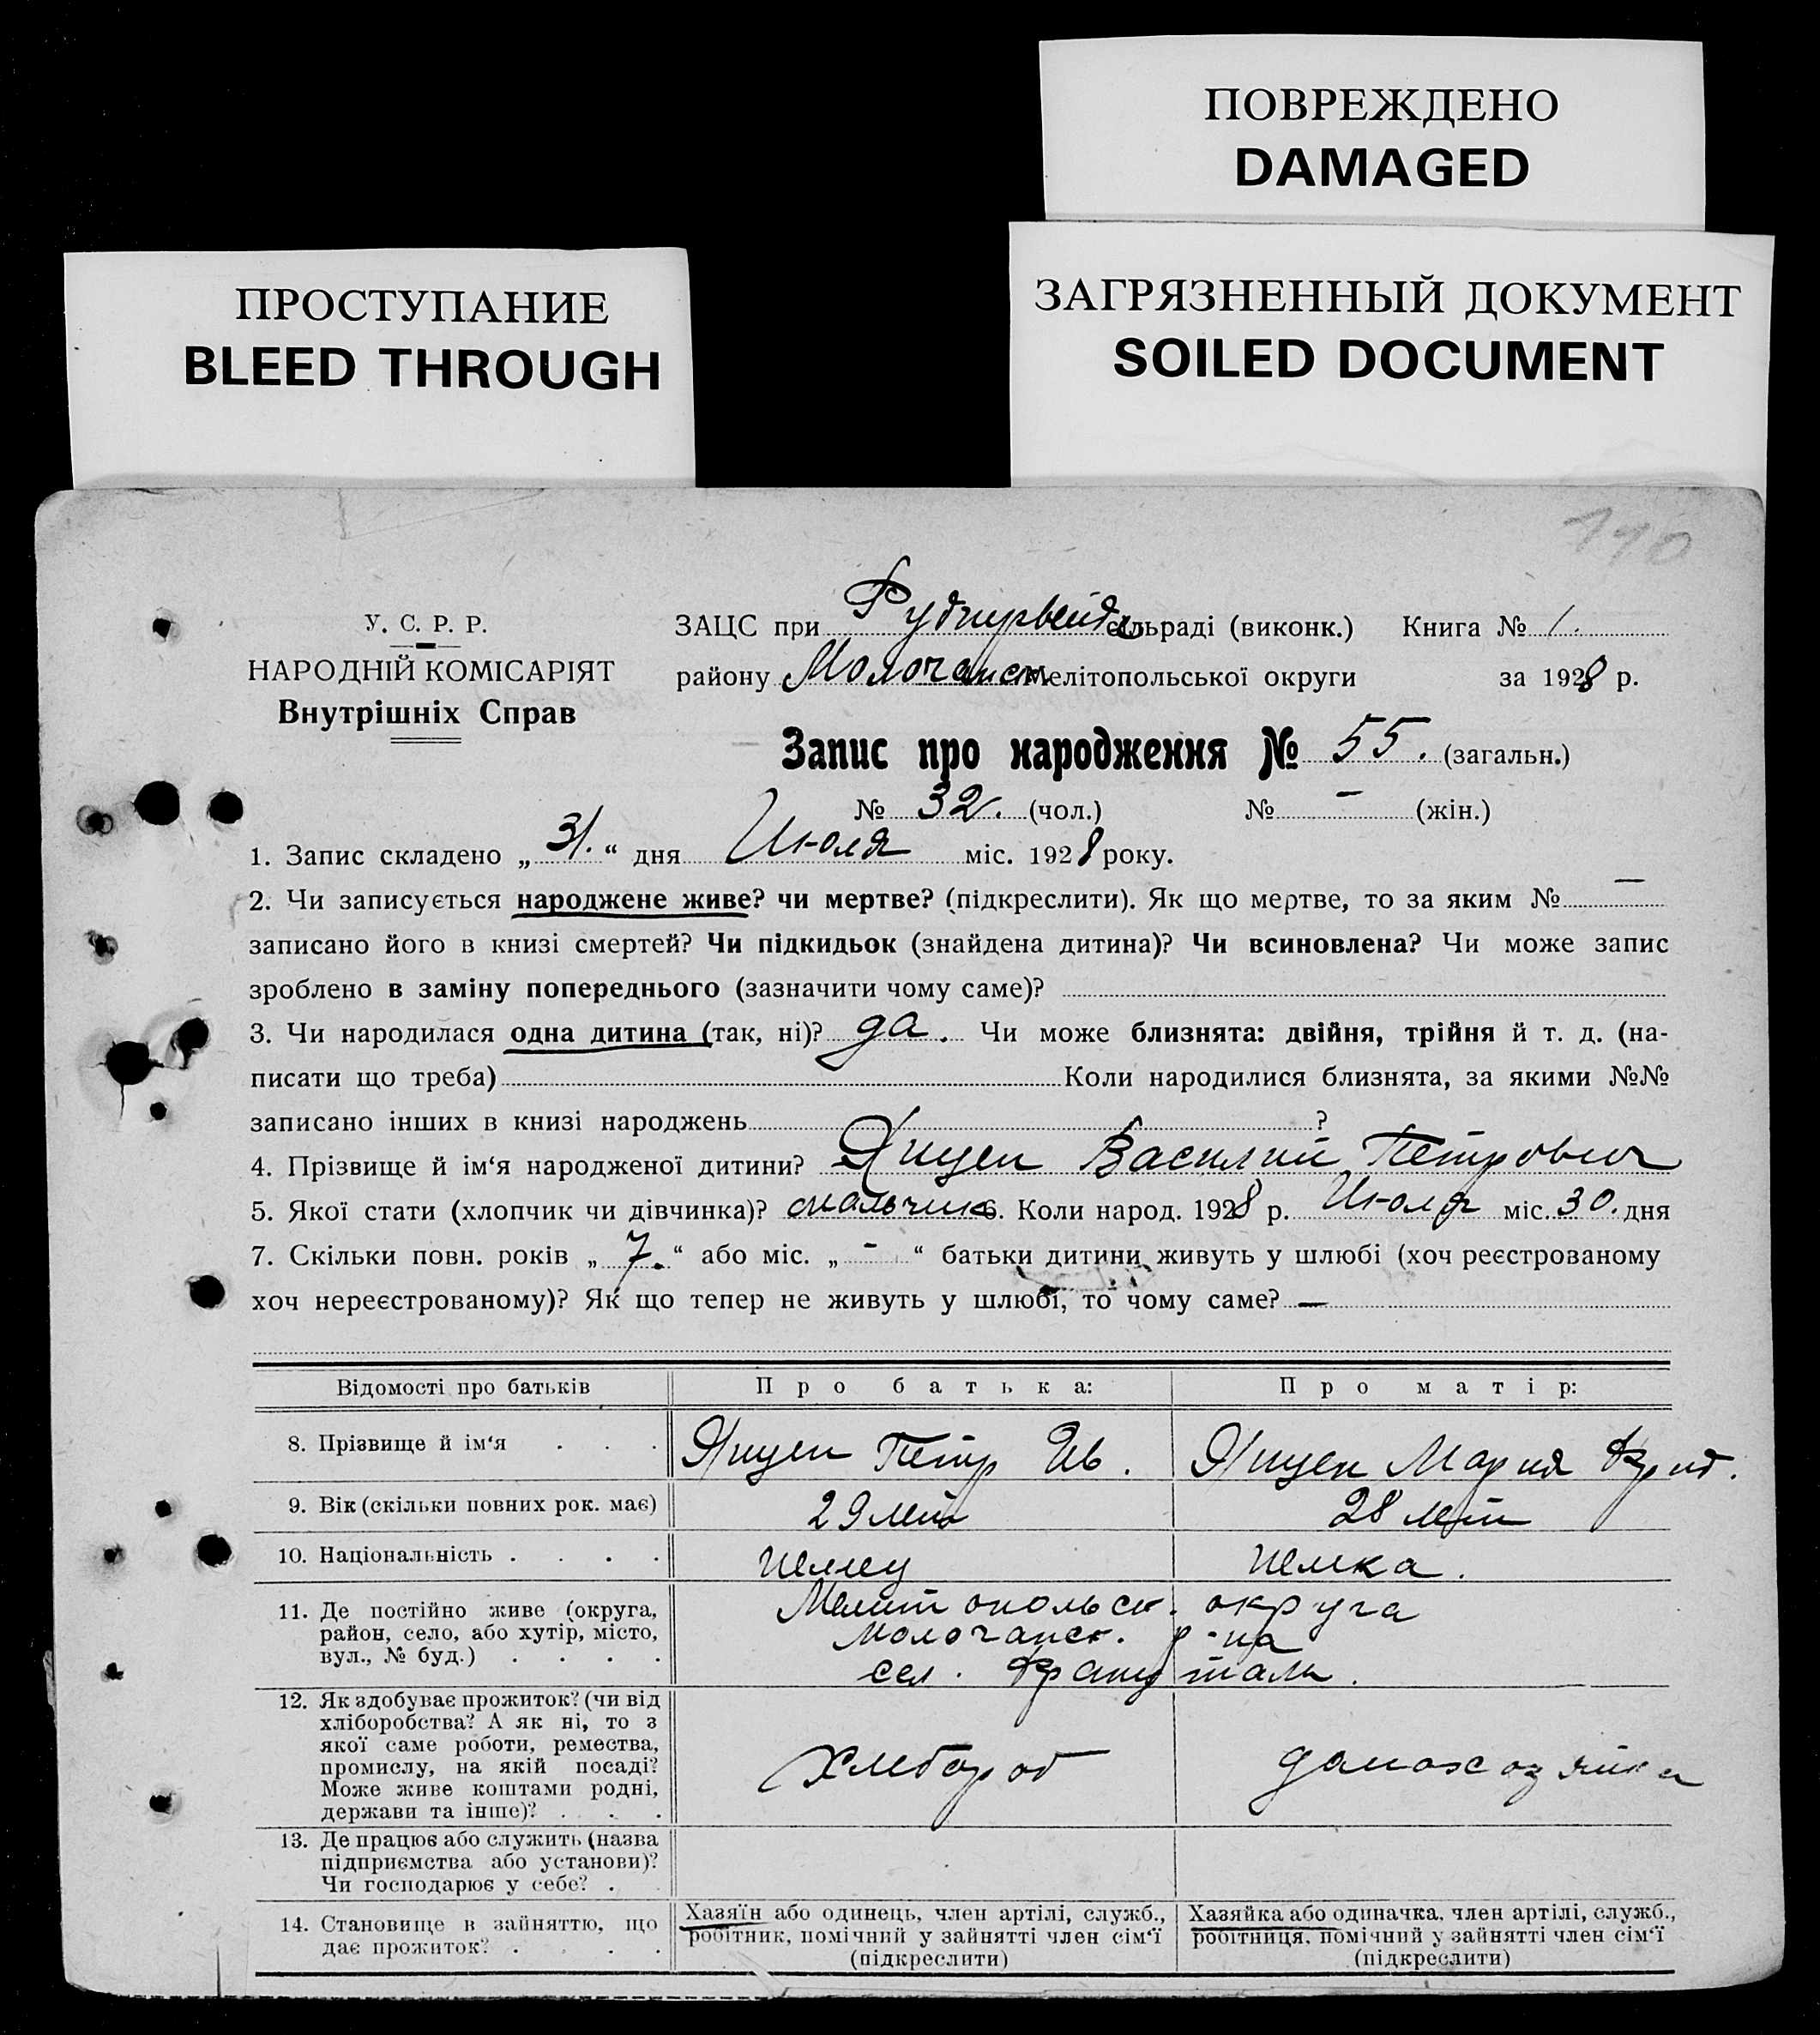 ПОВРЕЖДЕНО
DAMAGED
ПРОСТУПАНИЕ
BLEED THROUGH
ЗАГРЯЗНЕННЫЙ ДОКУМЕНТ
SOILED DOCUMENT
У. С. Р. Р.
НАРОДНІЙ КОМІСАРІЯТ
Внутрішніх Справ
ЗАЦС при сільраді (виконк.) Книга № 1.
району Молочанск. Мелітопольської округи за 1928 р.
Запис про народження № 55. (загальн.)
№ 32. (чол.) № — (жін.)
1. Запис складено „31.“ дня Июля міс. 1928 року.
2. Чи записується народжене живе? чи мертве? (підкреслити). Як що мертве, то за яким № —
записано його в книзі смертей? Чи підкидьок (знайдена дитина)? Чи всиновлена? Чи може запис
зроблено в заміну попереднього (зазначити чому саме)?
3. Чи народилася одна дитина (так, ні)? да. Чи може близнята: двійня, трійня й т. д. (на-
писати що треба) Коли народилися близнята, за якими №№
записано інших в книзі народжень ?
4. Прізвище й ім‘я народженої дитини? Янцен Василий Петрович
5. Якої стати (хлопчик чи дівчинка)? мальчик 6. Коли народ. 1928 р. Июля міс. 30. дня
7. Скільки повн. років „7.“ або міс. „-“ батьки дитини живуть у шлюбі (хоч реєстрованому
хоч нереєстрованому)? Як що тепер не живуть у шлюбі, то чому саме? —
Відомості про батьків Про батька: Про матір:
8. Прізвище й ім‘я . . . Янцен Петр Ив. Янцен Мария Фрид.
9. Вік (скільки повних рок. має) 29 лет 28 лет
10. Національність . . . . немец немка.
11. Де постійно живе (округа, Мелитопольск. округа
район, село, або хутір, місто, Молочанск. р-на
вул., № буд.) . . . . сел. Францталь.
12. Як здобуває прожиток? (чи від
хліборобства? А як ні, то з
якої саме роботи, ремества,
промислу, на якій посаді? Хлебороб домохозяйка
Може живе коштами родні,
держави та інше)? . . .
13. Де працює або служить (назва
підприємства або установи)?
Чи господарює у себе? .
14. Становище в зайняттю, що
дає прожиток? . . . .
Хазяїн або одинець, член артілі, служб.,
робітник, помічний у зайнятті член сім‘ї
(підкреслити)
Хазяйка або одиначка, член артілі, служб.,
робітниця, помічний у зайнятті член сім‘ї
(підкреслити)